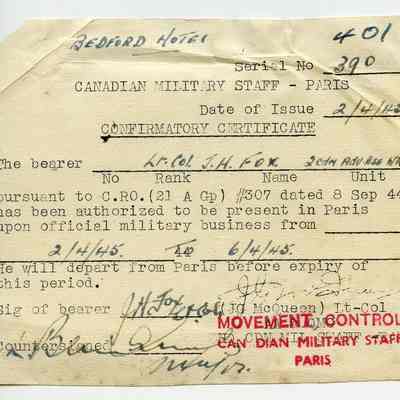 BEDFORD HOTEL 401
Serial No 390
CANADIAN MILITARY STAFF - PARIS
Date of Issue 2/4/45
CONFIRMATORY CERTIFICATE
The bearer Lt. Col J.H. FOX
No Rank Name Unit
pursuant to C.RO.(21 A Gp) #307 dated 8 Sep 44
has been authorized to be present in Paris
upon official military business from
2/4/45. To 6/4/45.
He will depart from Paris before expiry of
this period.
Sig of bearer JH Fox (JO McQueen) Lt-Col
MOVEMENT CONTROL
CAN DIAN MILITARY STAFF
PARIS
Countersigned
Major